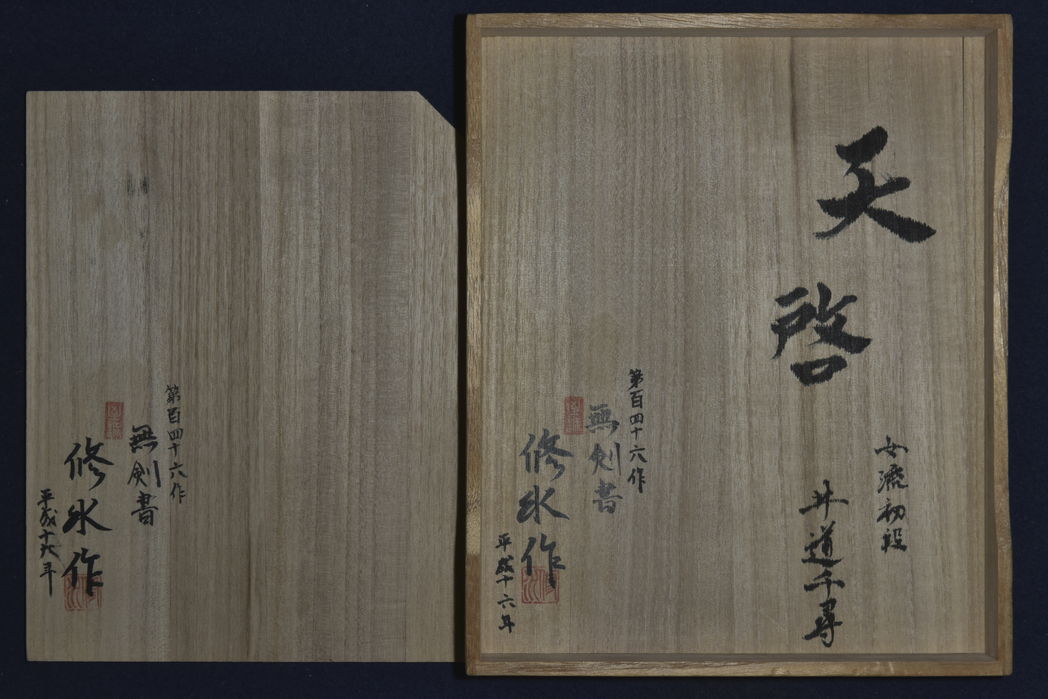 天啓
女流初段
井道千尋
第百四十六作
無剣書
修水作
平成十六年
第百四十六作
無剣書
修水作
平成十六年